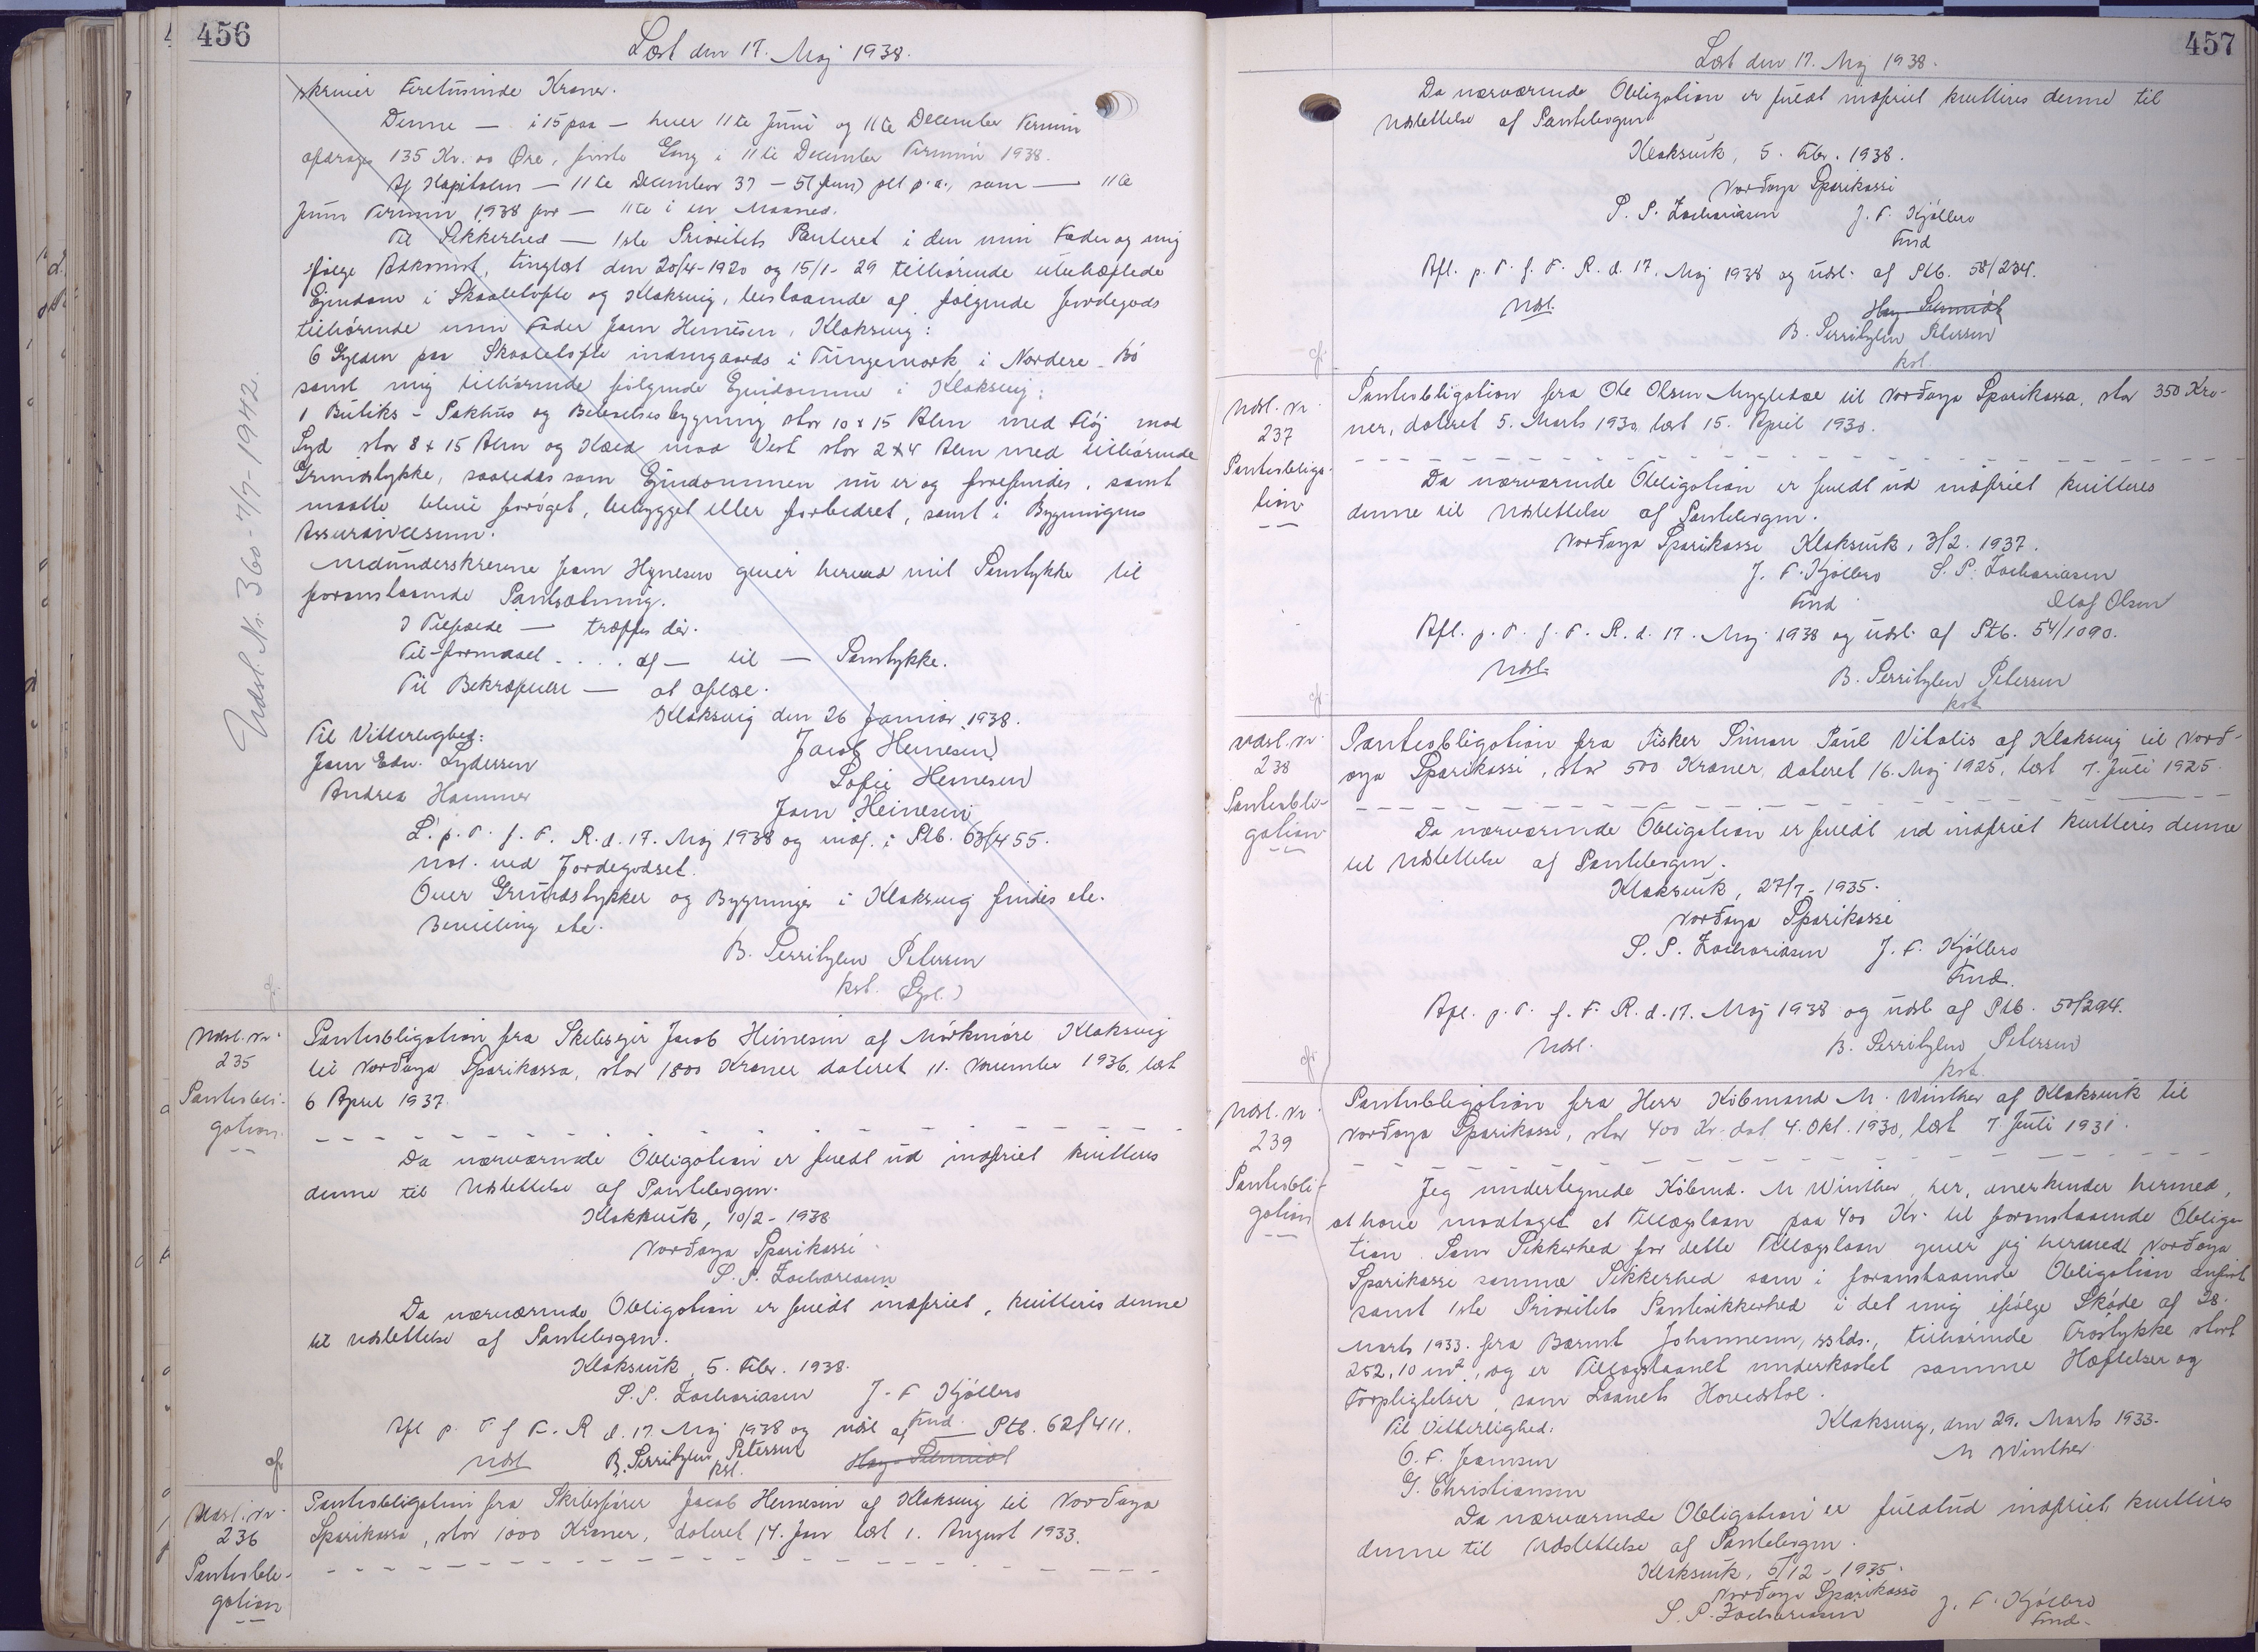 456
Læst den 17. Maj 1938.
skriver Firetusinde Kroner.
Denne — i 15 paa — hver 11te Juni og 11te December Termin
afdrages 135 Kr. 00 Øre, første Gang i 11te December Termin 1938.
Af Kapitalen — 11te December 37 — 5 (fem) pct p.a., som — 11te
Juni Termin 1938 for — 11te i en Maaned.
Til Sikkerhed — 1ste Prioritets Panteret i den min Fader og mig
ifølge Adkomst, tinglæst den 20/4-1920 og 15/1-29 tilhørende ubehæftede
Ejendom i Skaaletofte og Klaksvig, bestaaende af følgende Jordegods
tilhørende min Fader Joen Heinesen, Klaksvig:
6 Gylden paa Skaaletofte indengaards i Tungemark i Nordere-Bö
samt mig tilhørende følgende Ejendomme i Klaksvig:
1 Butiks- Pakhus og Beboelsesbygning stor 10 x 15 Alen med Fløj mod
Syd stor 8 x 15 Alen og Kæld mod Vest stor 2 x 4 Alen med tilhørende
Grundstykke, saaledes som Ejendommen nu er og forefindes, samt
maatte blive forøget, bebygget eller forbedret, samt i Bygningens
Assurancesum.
Medunderskrevne Joen Heinesen giver herved mit Samtykke til
foranstaaende Pantsætning.
I Tilfælde — træffes dér.
Til-formaal .... af — til — Samtykke.
Til Bekræftelse — at aflæse.
Klaksvig den 26 Januar 1938.
Til Vitterlighed:
Jacob Heinesen
Joen Edw. Lydersen
Sofie Heinesen
Andrea Hammer
Joen Heinesen
L. p. T. f. F. R. d. 17. Maj 1938 og indf. i Ptb. 63/455.
Not. ved Jordegodset.
Over Grundstykker og Bygninger i Klaksvig findes ele.
Bevilling ele.
B. Serritzlew Petersen
kst.
Udsl. Nr. 360 - 7/7-1942.
Udsl. Nr.
235
Pantobli-
gation.
Pantobligation fra Skibsejer Jacob Heinesen af Mörkmöre Klaksvig
til Norðoya Sparikassa, stor 1800 Kroner dateret 11. November 1936, læst
6 April 1937.
Da nærværende Obligation er fuldt ud indfriet kvitteres
denne til Udslettelse af Pantebogen.
Klakksvík, 10/2-1938
Norðoya Sparikassi
S. P. Zachariasen
Da nærværende Obligation er fuldt indfriet, kvitteris denne
til udslettelse af Pantebogen.
Klaksvík, 5. Febr. 1938.
S. P. Zachariasen J. F. Kjölbro
Fmd.
Afl p. T f F. R d. 17. Maj 1938 og udsl af Ptb. 62/411.
Udsl
B. Serritzlew Petersen
kst.
Udsl. Nr.
236
Pantobli-
gation
Pantobligation fra Skibsfører Jacob Heinesen af Klaksvig til Norðoya
Sparikassa, stor 1000 Kroner, dateret 14. Jan læst 1. August 1933.
457
Læst den 17. Maj 1938.
Da nærværende Obligation er fuldt indfriet kvitteres denne til
Udslettelse af Pantebogen.
Klaksvík, 5. Febr. 1938.
Norðoya Sparikassi
S. P. Zachariasen J. F. Kjölbro
Fmd
Afl. p. T. f. F. R. d. 17. Maj 1938 og udsl. af Ptb. 58/234.
Udsl.
B. Serritzlew Petersen
kst.
Udsl. Nr.
237
Pantobliga-
tion
Pantobligation fra Ole Olsen Mygledal til Norðoya Sparikassa, stor 350 Kro-
ner, dateret 5. Marts 1930, læst 15. April 1930.
Da nærværende Obligation er fuldt ud indfriet kvitteres
denne til Udslettelse af Pantebogen.
Norðoya Sparikassi Klaksvík, 3/2. 1937.
J. F. Kjölbro S. P. Zachariasen
Fmd
Olaf Olsen
Afl. p. T. f. F. R. d. 17. Maj 1938 og udsl. af Ptb. 54/1090.
Udsl.
B. Serritzlew Petersen
kst.
Udsl. Nr.
238
Pantobli-
gation
Pantobligation fra Fisker Simon Paul Vitalis af Klaksvig til Norð-
oya Sparikassi, stor 500 Kroner, dateret 16. Maj 1925, læst 7. Juli 1925.
Da nærværende Obligation er fuldt ud indfriet kvitteris denne
til Udslettelse af Pantebogen.
Klaksvík, 27/7-1935.
Norðoya Sparikassi
S. P. Zachariasen J. F. Kjölbro
Fmd.
Afl. p. T. f. F. R. d. 17. Maj 1938 og udsl. af Ptb. 50/294.
Udsl.
B. Serritzlew Petersen
kst.
Udsl. Nr.
239
Pantobli-
gation
Pantobligation fra Herr Köbmand M. Winther af Klaksvík til
Norðoya Sparikassi, stor 400 Kr. dat. 4. Okt. 1930, læst 7. Juli 1931.
Jeg undertegnede Købmd. M Winther, her, anerkender hermed,
at have modtaget et Tillægslaan paa 400 Kr. til foranstaaende Obliga-
tion. Som Sikkerhed for dette Tillægslaan giver jeg hermed Norðoya
Sparikasse samme Sikkerhed som i foranstaaende Obligation anført
samt 1ste Prioritets Pantesikkerhed i det mig ifølge Skøde af 28.
Marts 1933 fra Berint Johannesen, sstds., tilhørende Tröstykke stort
252,10 m², og er Tillægslaanet underkastet samme Hæftelser og
Forpligtelser, som Laanets Hovedstol.
Til Vitterlighed:
Klaksvig, den 29. Marts 1933.
O. F. Joensen
M Winther
G. Christiansen
Da nærværende Obligation er fuldtud indfriet, kvitteris
denne til Udslettelse af Pantebogen.
Klaksvík, 6/12-1935.
Norðoya Sparikassi
S. P. Zachariasen J. F. Kjölbro
Fmd.